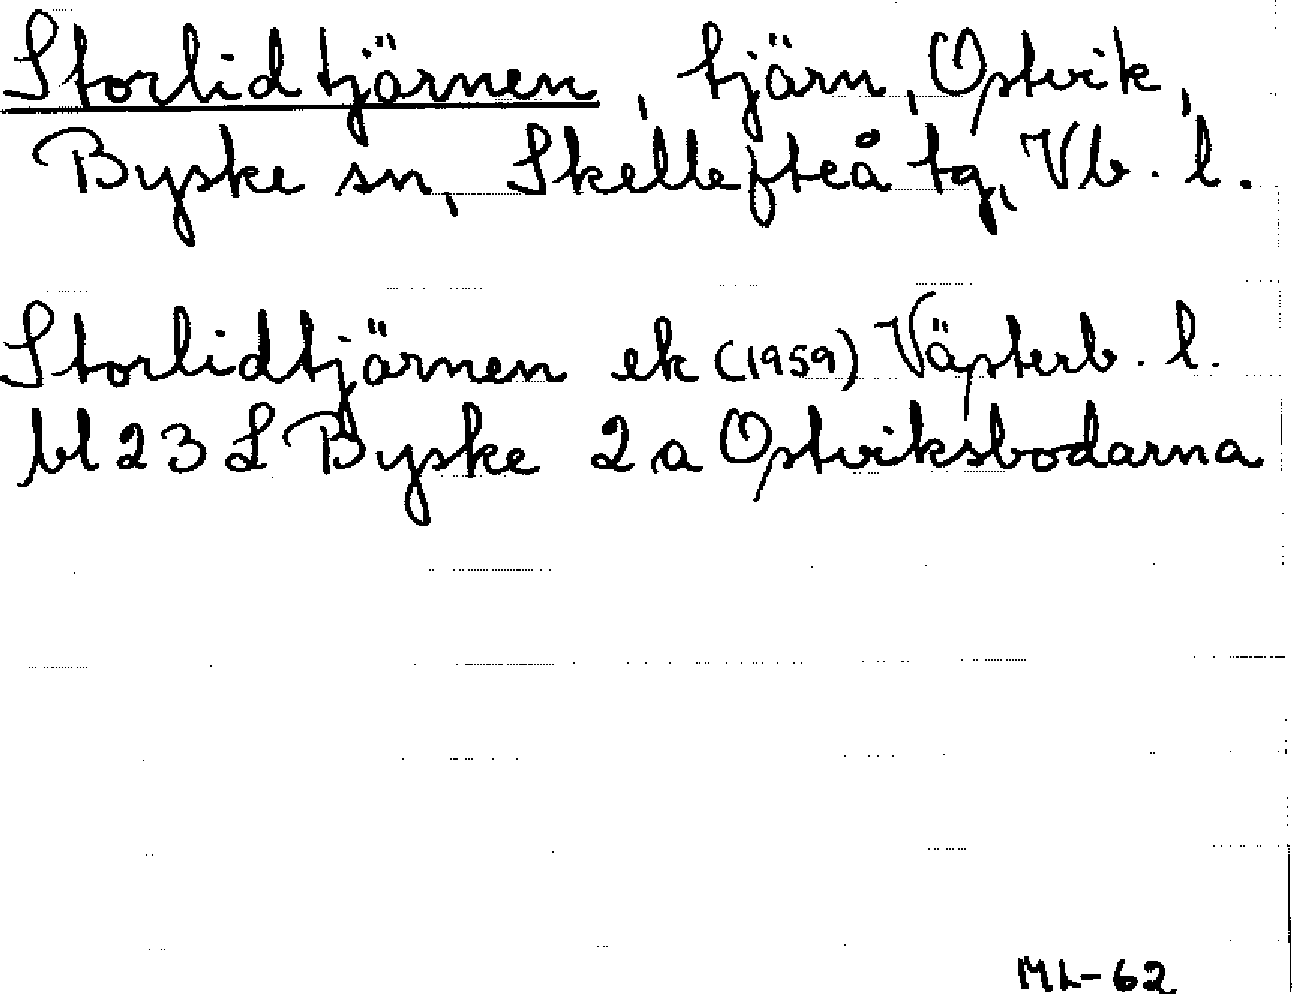 Storlidtjärnen, tjärn, Ostvik,
Byske sn, Skellefteå tg, Vb. l.
Storlidtjärnen ek (1959) Västerb. l.
bl 23 L Byske 2 a Ostviksbodarna
ML-62